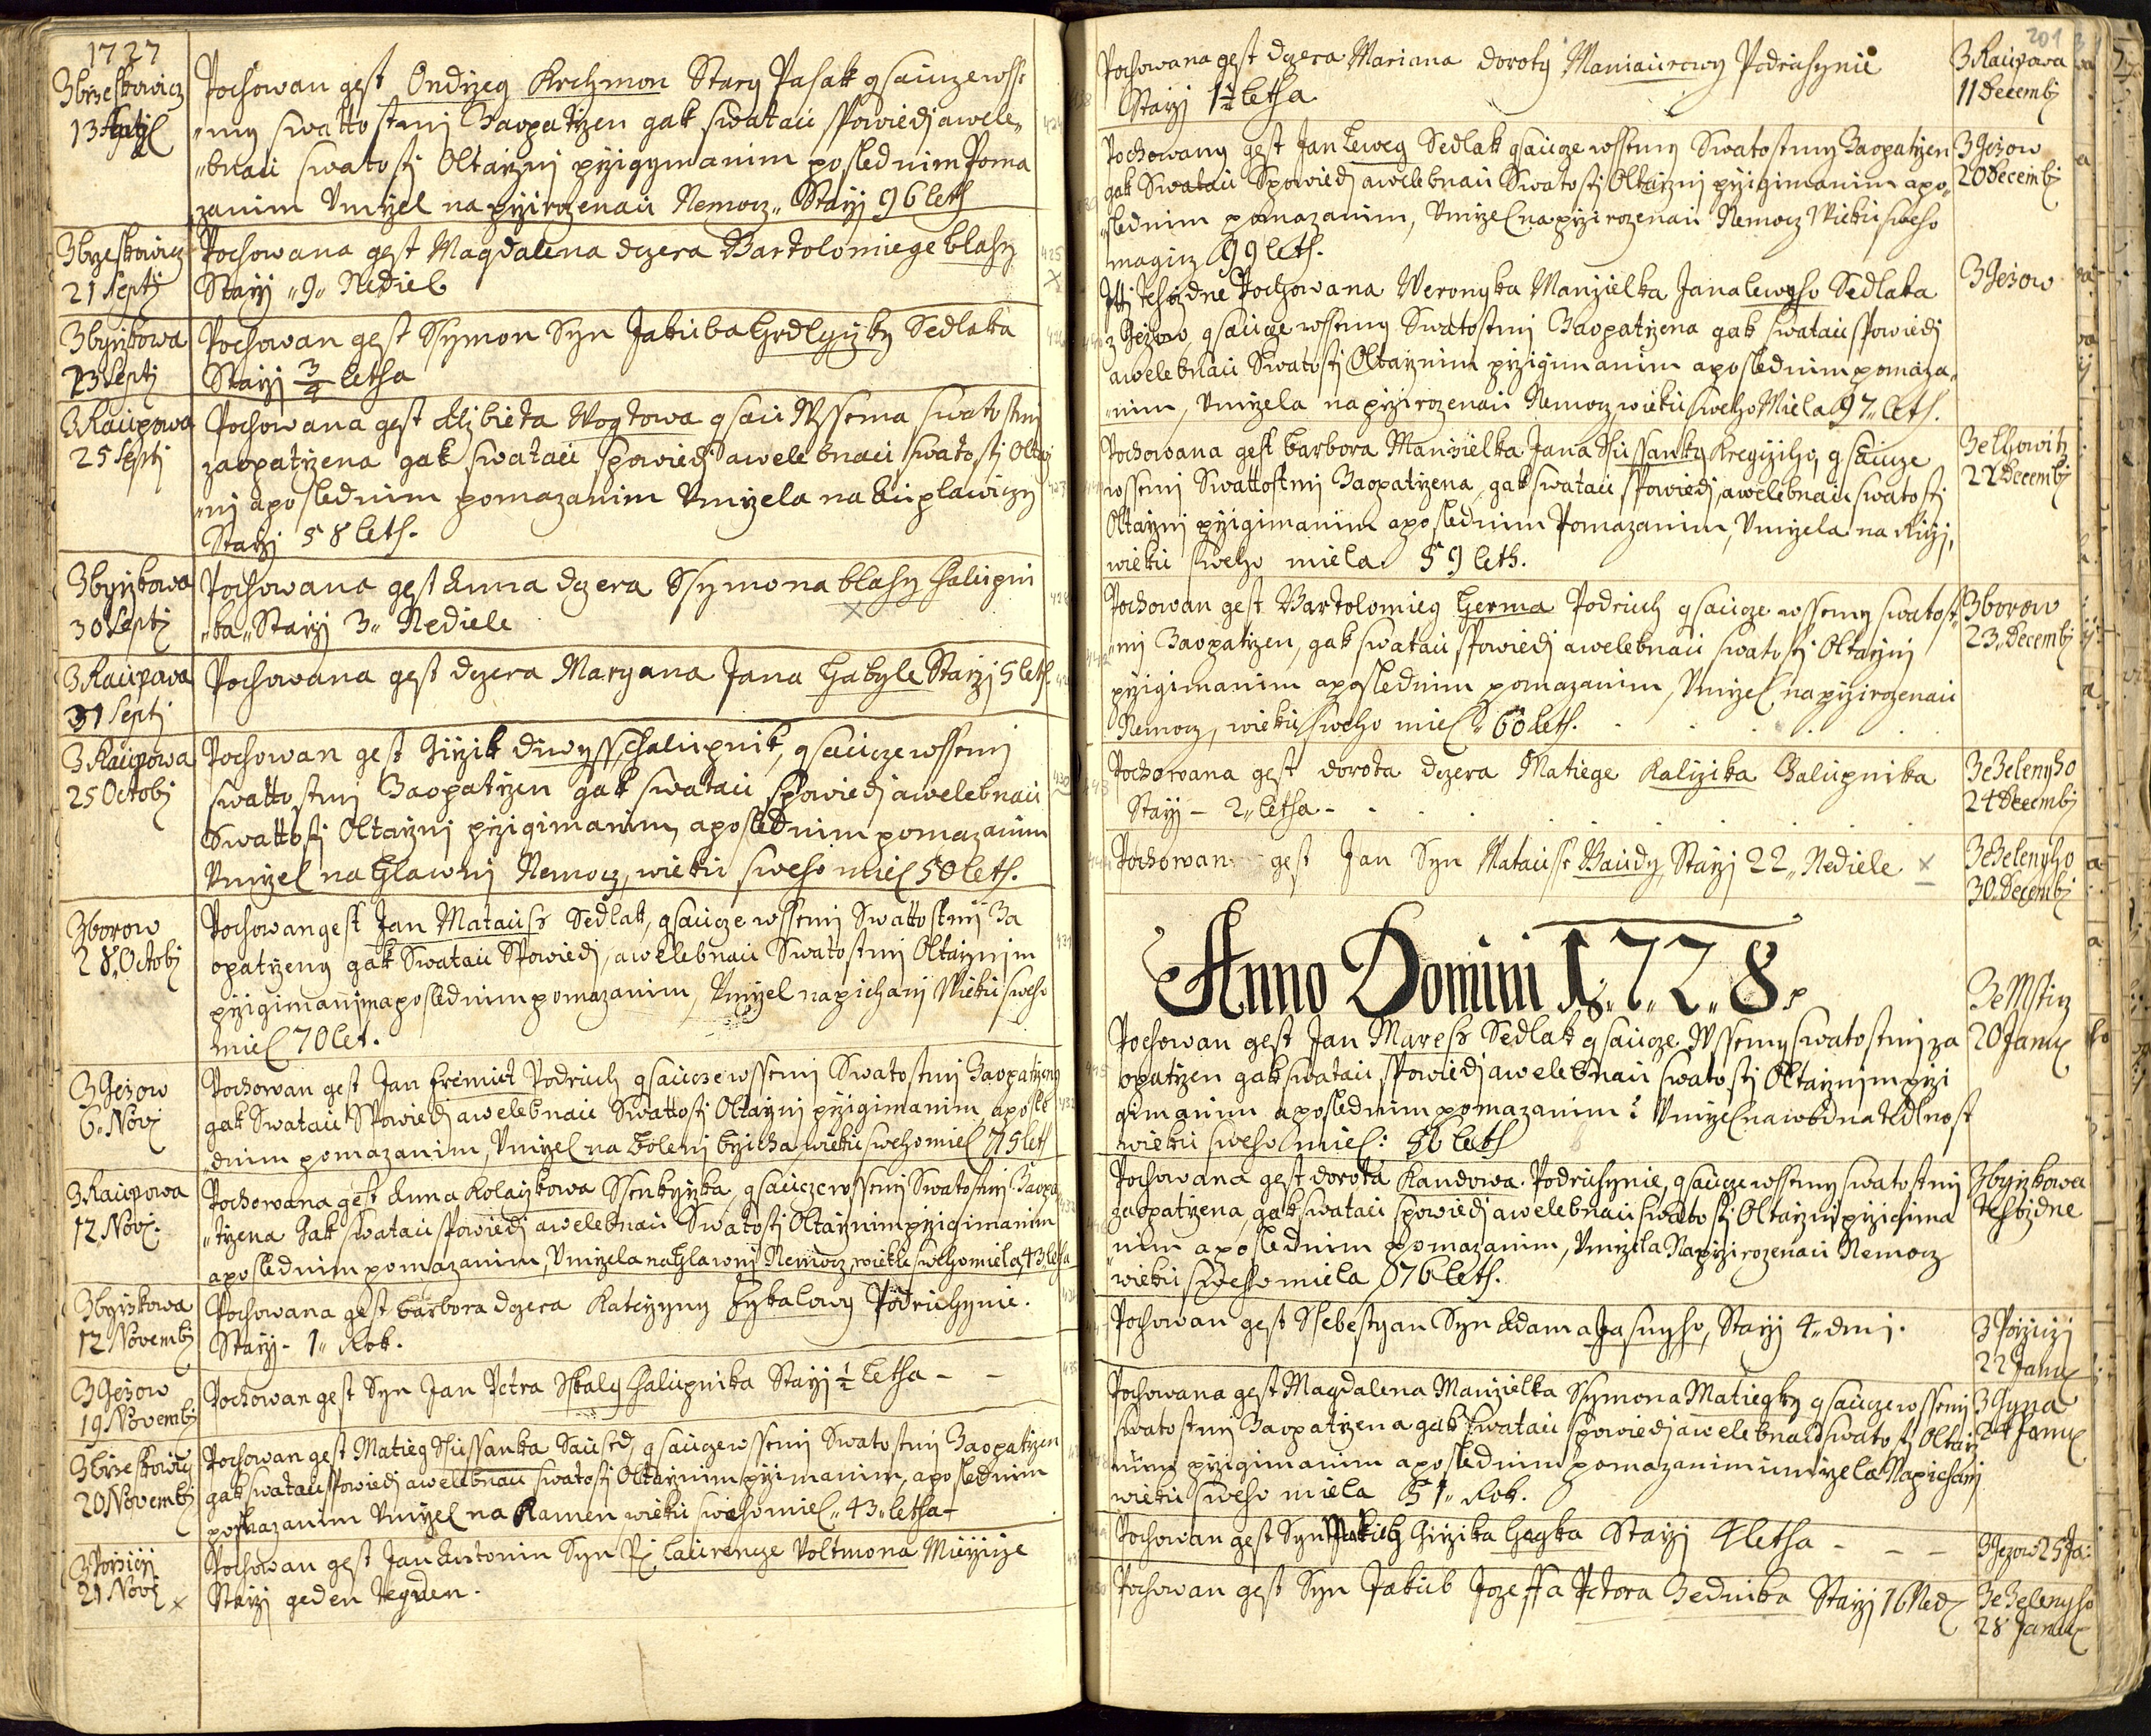 1727
Zbrzeskowicz
13 Septj
Pochowan gest Ondrzeg Krchmon Stary Pasak gsaucze wsse
my swattostmj Zaopatrzen gak swatau spowiedj a wele„
„bnau swatostj Oltarznj przigymanim poslednim Poma
zanim Vmrzel na przirozenau Nemocz„ Starzj 96 leth
Zbrzeskowicz
21 Septj
Pochowana gest Magdalena dczera Bartolomiege blahy
Starzj „9„ Nediel
Zbyrkowa
23 Septj
Pochowan gest Ssymon Syn Jakuba Hrdlyczky Sedlaka
Starzj 3/4 letha
Z Raupowa
25 Septj
Pochowana gest Alzbieta Wogtowa gsau Wssema swatostmj
zaopatrzena gak swatau spowiedj a welebnau swatostj Oltarz
„nj a poslednim pomazanim Vmrzela na Suplawiczy
Starzj 58 leth.
Zbyrkowa
30 Septj
Pochowana gest Anna dczera Ssymona blahy Chalupni
„ka„ Starzj 3„ Nediele
Z Raupowa
31 Septj
Pochowana gest dczera Maryana Jana Habyle Starzj 5 leth.
Z Raupowa
25 Octobj
Pochowan gest Girzik diwyss Chalupnik, gsaucze wssemj
swattostmj Zaopatrzen gak swatau spowiedj a welebnau
Swattostj Oltarznj przigimanim, a poslednim pomazanim
Vmrzel na Hlawnj Nemocz, wieku sweho miel 50 leth.
Zborow
28. Octobj
Pochowan gest Jan Matausse Sedlak, gsaucze wssemj Swattostmj Za
opatrzeny gak Swatau Spowiedj, a welebnau Swatostmj Oltarznjm
przigimanjm a poslednim pomazanim, Vmrzel na pichanj Wieku sweho
miel 70 let.
Z Gezow
6. Novj
Pochowan gest Jan fremut Podruch gsaucze wssemj Swatostmj Zaopatrzeny
gak Swatau Spowiedj a welebnau Swattostj Oltarznj przigimanim, a posle
„dnim pomazanim, Vmrzel na bolenj brzicha, wieku sweho miel 75 leth
Z Raupowa
12 Novj.
Pochowana gest Anna Kolarzkowa Ssenkyrzka, gsaucze wssemj Swatostmj Zaopa
„trzena Gak swatau spowiedj a welebnau Swatostj Oltarznim przigimanim
a poslednim pomazanim, Vmrzela na Hlawnj Nemocz, wieku sweho miela, 43 letha
Zbyrkowa
12 Novembj
Pochowana gest barbora dczera Katerzyny Hykalowy Podruhynie.
Starzj - 1„ Rok.
Z Gezow
19 Novembj
Pochowan gest Syn Jan Petra Skaly Chalupnika Starzj 1/2 Letha - -
Zbrzeskowicz
20 Novembj
Pochowan gest Matieg Hussanka Saused, gsaucze wssemj Swatostmj Zaopatrzen
gak swatau spowiedj a welebnau swatostj Oltarznim przimanim, a poslednim
pomazanim Vmrzel na Kamen, wieku sweho miel„ 43„ letha -
Z Porziczj
21 Novj
Pochowan gest Jan Antonin Syn Pj Laurencze Voltmona
Starzj geden tegden.
201
Pochowana gest dczera Mariana doroty Maniaurowy Podruhynie
Starzj 1 1/2 letha.
Z Raupowa
11 Decembj
Pochowany gest Jan Leweg Sedlak gsaucze wssemy Swatostmy Zaopatrzen
gak Swatau Spowiedj a welebnau Swatostj Oltarznj przigimanim a po„
„slednim pomazanim, Vmrzel na przirozenau Nemocz Wieku sweho
magicz 99 leth.
Z Gezow
20 Decembj
Ittj tehodne Pochowana Weronyka Manzielka Jana leweho Sedlaka
z Gezow, gsaucze wssemy Swatostmj Zaopatrzena gak swatau spowiedj
a welebnau Swatostj Oltarznim przigimanim a poslednim pomaza„
„nim, Vmrzela na przirozenau Nemocz wieku sweho Miela 97„ leth.
Z Gezow
Pochowana gest barbora Manzielka Jana Hussanky Kregcziho, gsaucze
wssemj Swattostmj Zaopatrzena, gak swatau spowiedj, a welebnau swatostj
Oltarznj przigimanim a poslednim Pomazanim, Vmrzela na
wieku sweho miela. 59 leth.
Ze Lhowitz
22 Decembj
Pochowan gest Bartolomieg Herma Podruch gsaucze wssemy swatost„
„mj Zaopatrzen, gak swatau spowiedj a welebnau swatostj Oltarznj
przigimanim a poslednim pomazanim, Vmrzel na przirozenau
Nemocz, wieku sweho miel„ 60 leth.
Zborow
23. Decembj
Pochowana gest dorota dczera Matiege Kalizika Chalupnika
Starzj - 2„ letha -
Ze Zelenyho
24 Decembj
Pochowan gest Jan Syn Matausse Baudy, Starzj 22„ Nediele
Ze Zelenyho
30. Decembj
Anno Domini 1.7.2.8.
Pochowan gest Jan Maress Sedlak gsaucze Wssemy swatostmj za
opatrzen gak swatau spowiedj a welebnau swatostj Oltarznjm przi
gimanim a poslednim pomazanim: Vmrzel na wodnatedlnost
wieku sweho miel: 56 leth
Ze Msticz
20 Janu
Pochowana gest dorota Kandowa Podruhynie, gsaucze wssemy swatostmj
zaopatrzena, gak swatau spowiedj a welebnau swatostj Oltarznj przigima
nim a poslednim pomazanim, Vmrzela Na przirozenau Nemocz
wieku sweho miela 76 leth.
Zbyrkowa
tehozdne
Pochowan gest Ssebestyan Syn Adama Jasnyho, Starzj 4„ dnj.
Z Porziczj
22 Janu
Pochowana gest Magdalena Manzielka Ssymona Matiegky gsaucze wssemj
swatostmj Zaopatrzena gak swatau spowiedj a welebnau swatostj Oltarz
nim przigimanim a poslednim pomazanim umrzela Na pichanj
wieku sweho miela 51„ Rok.
Z Gyna
24 Janu
Pochowan gest Syn Girzika Hagka Starzj 4 letha - - -
Z Gezow 25 Ja:
Pochowan gest Syn Jakub Jozeffa Petora Bednika Starzj 16 Ned
Ze Zelenyho
28 Janu